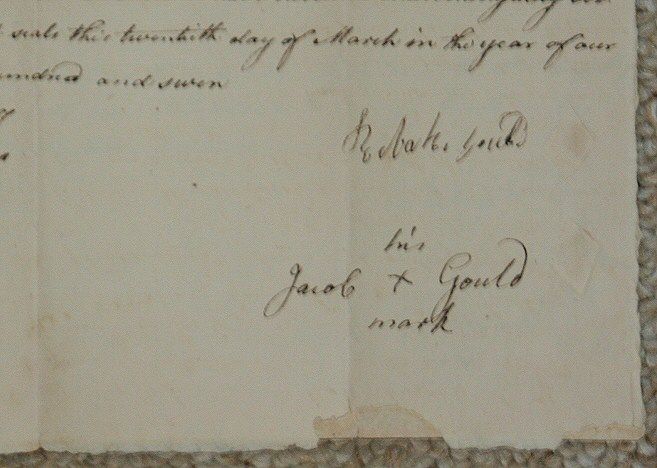 seals this twentieth day of March in the year of our
hundred and seven
Gould
his
Jacob + Gould
mark